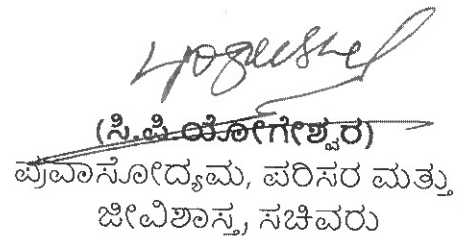 (ಸಿ.ಪಿ.ಯೋಗೇಶ್ವರ)
ಪ್ರವಾಸೋದ್ಯಮ, ಪರಿಸರ ಮತ್ತು
ಜೀವಿಶಾಸ್ತ್ರ ಸಚಿವರು